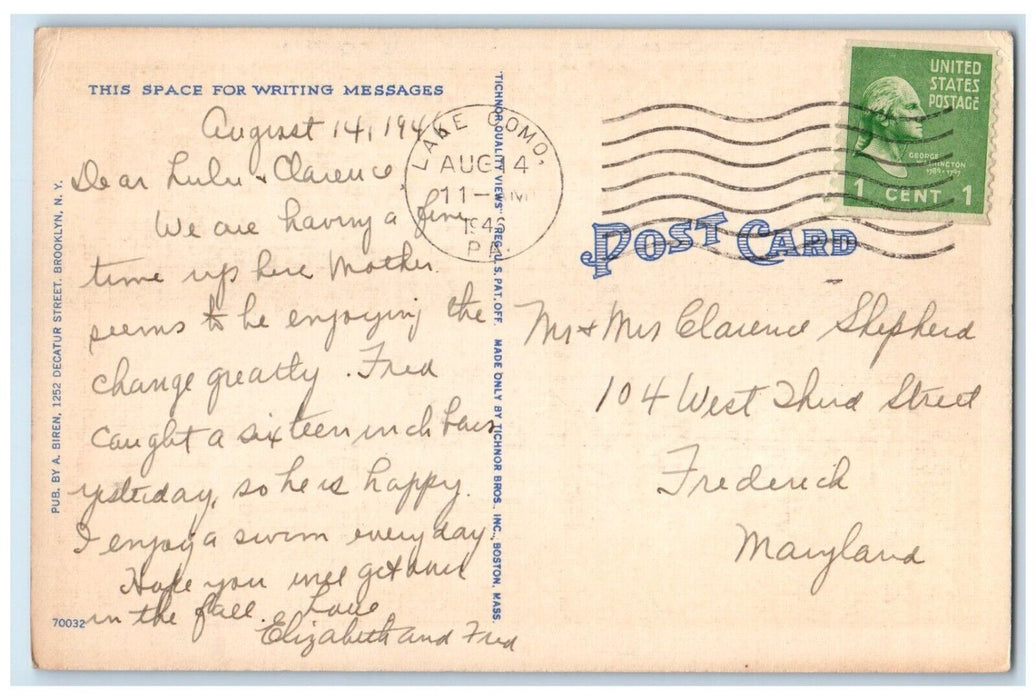 THIS SPACE FOR WRITING MESSAGES
August 14, 194
Dear Lulu & Clarence
We are having a fine
time up here Mother
seems to be enjoying the
change greatly. Fred
caught a sixteen inch bass
yesterday, so he is happy.
I enjoy a swim everyday
Hope you will get over
in the fall. Love
Elizabeth and Fred
70032
PUB. BY A. BIREN, 1252 DECATUR STREET, BROOKLYN, N. Y.
"TICHNOR QUALITY VIEWS" REG. U. S. PAT. OFF. MADE ONLY BY TICHNOR BROS., INC., BOSTON, MASS.
LAKE COMO,
AUG 14
11- AM
194
PA.
UNITED
STATES
POSTAGE
GEORGE
WASHINGTON
1789-1797
1 CENT 1
POST CARD
Mr & Mrs Clarence Shepherd
104 West Third Street
Frederick
Maryland